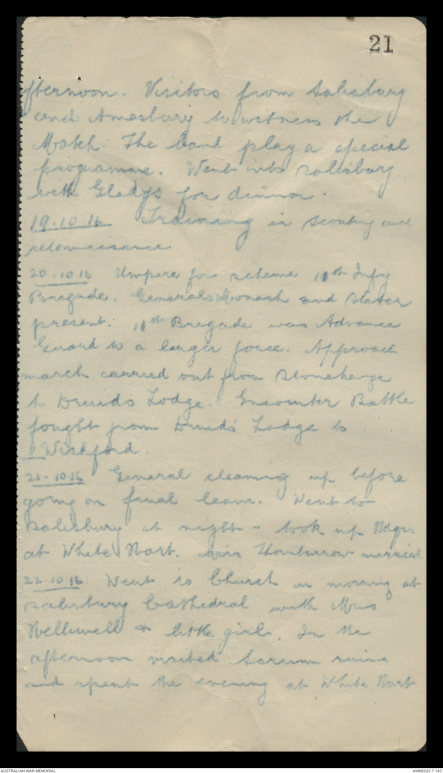 21
afternoon. Visitors from Salisbury
and Amesbury to witness the
Match The band play a special
programme. Went into Salisbury
with Gladys for dinner.
19.10.16 Training in scouting and
reconnaissance
20.10.16 Umpire for scheme 11th Infy
Brigade. Generals Monash and
present. 11th Brigade was Advance
Guard to a larger force. Approach
march carried out from Stonehenge
to Druids Lodge. Encounter Battle
fought from Druids Lodge to
Wishford.
21.10.16 General cleaning up before
going on final leave. Went to
Salisbury at night - took up Hdqrs
at White Hart. Miss married
22.10.16 Went to Church in morning at
Salisbury Cathedral with Mrs
Helliwell & little girls. In the
afternoon visited Sarum ruins
and spent the evening at White Hart
AUSTRALIAN WAR MEMORIAL